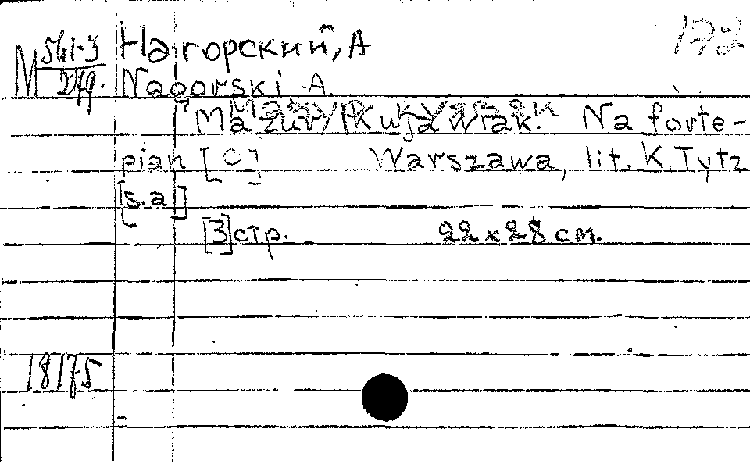 М 561-3/249. Нагорский, А 172
Nagorski A.
Mazur, Kujawiak. Na forte-
pian [C] Warszawa, lit. K. Tytz
[s.a.]
[3] стр. 22 x 28 см.
18175